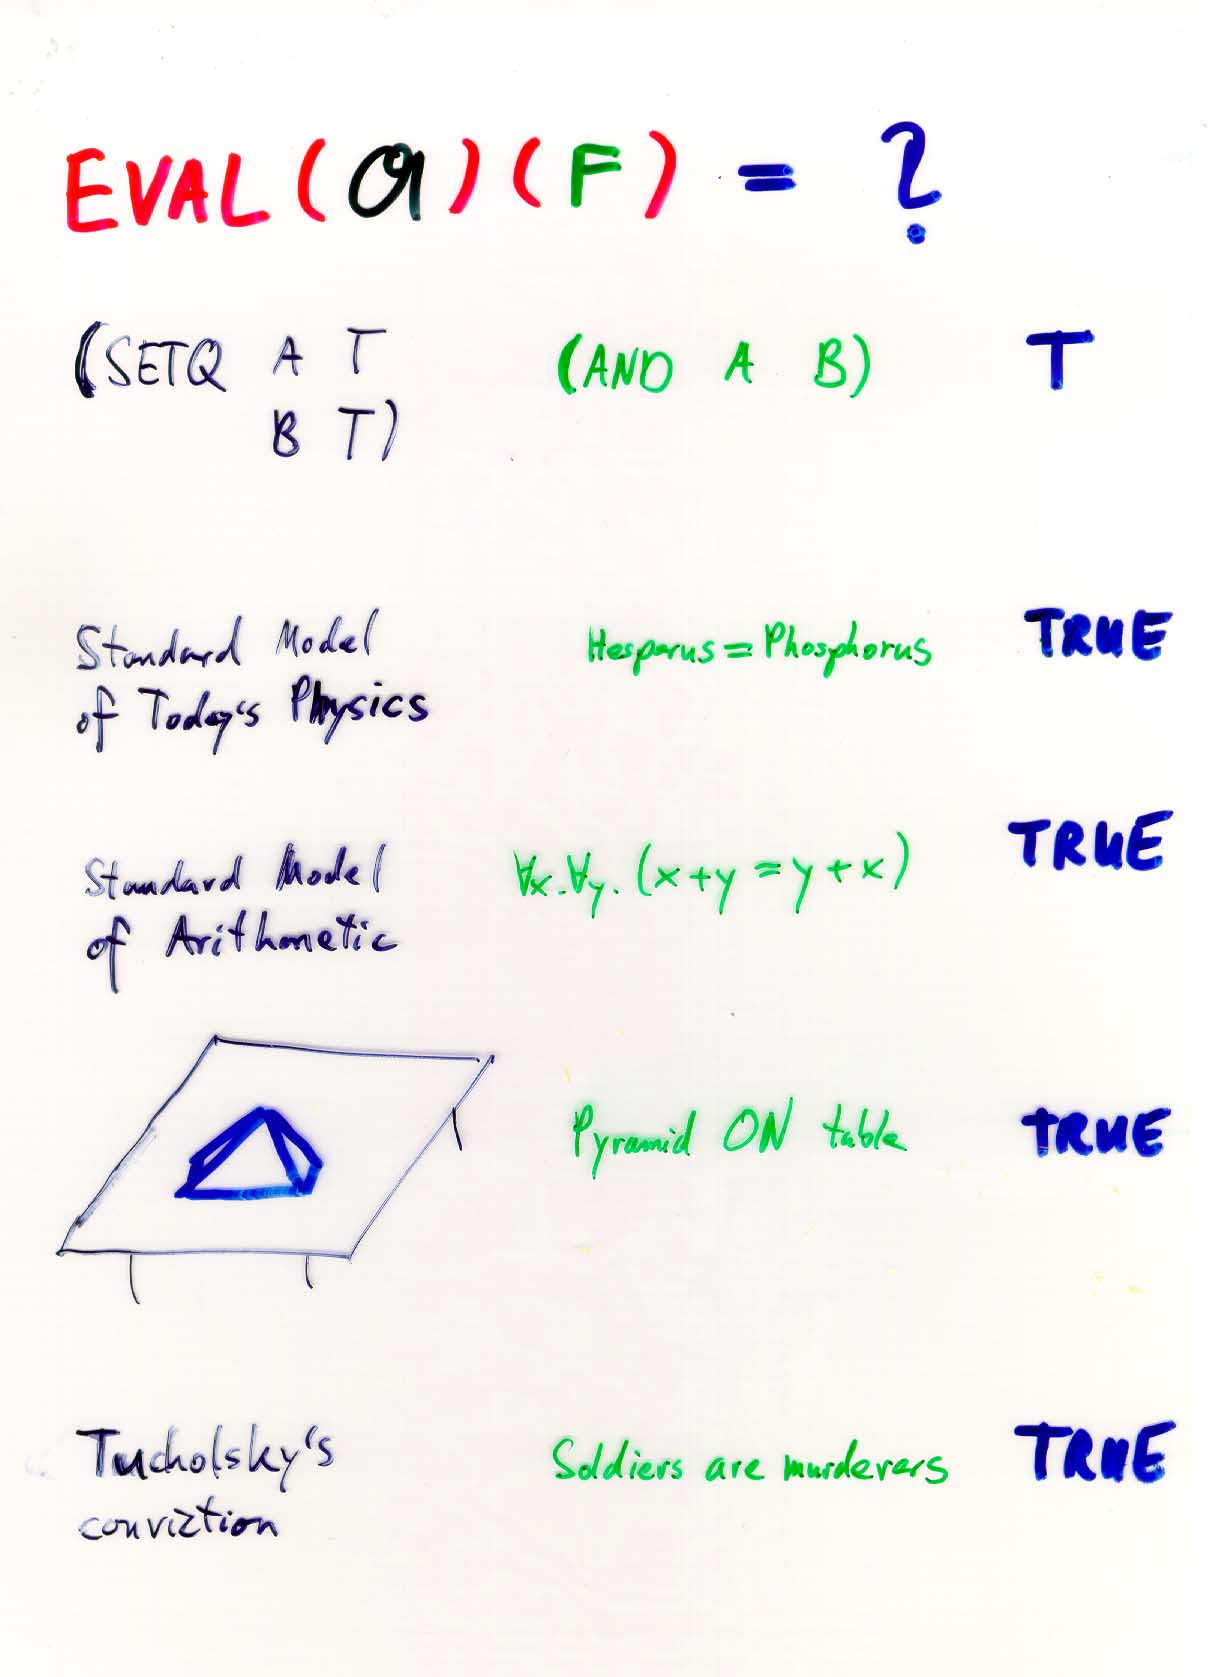 EVAL(𝔄)(F) = ?
(SETQ A T (AND A B) T
B T)
Standard Model Hesparus = Phosphorus TRUE
of Today's Physics
Standard Model ∀x.∀y.(x+y=y+x) TRUE
of Arithmetic
Pyramid ON table TRUE
Tucholsky's Soldiers are murderers TRUE
conviction